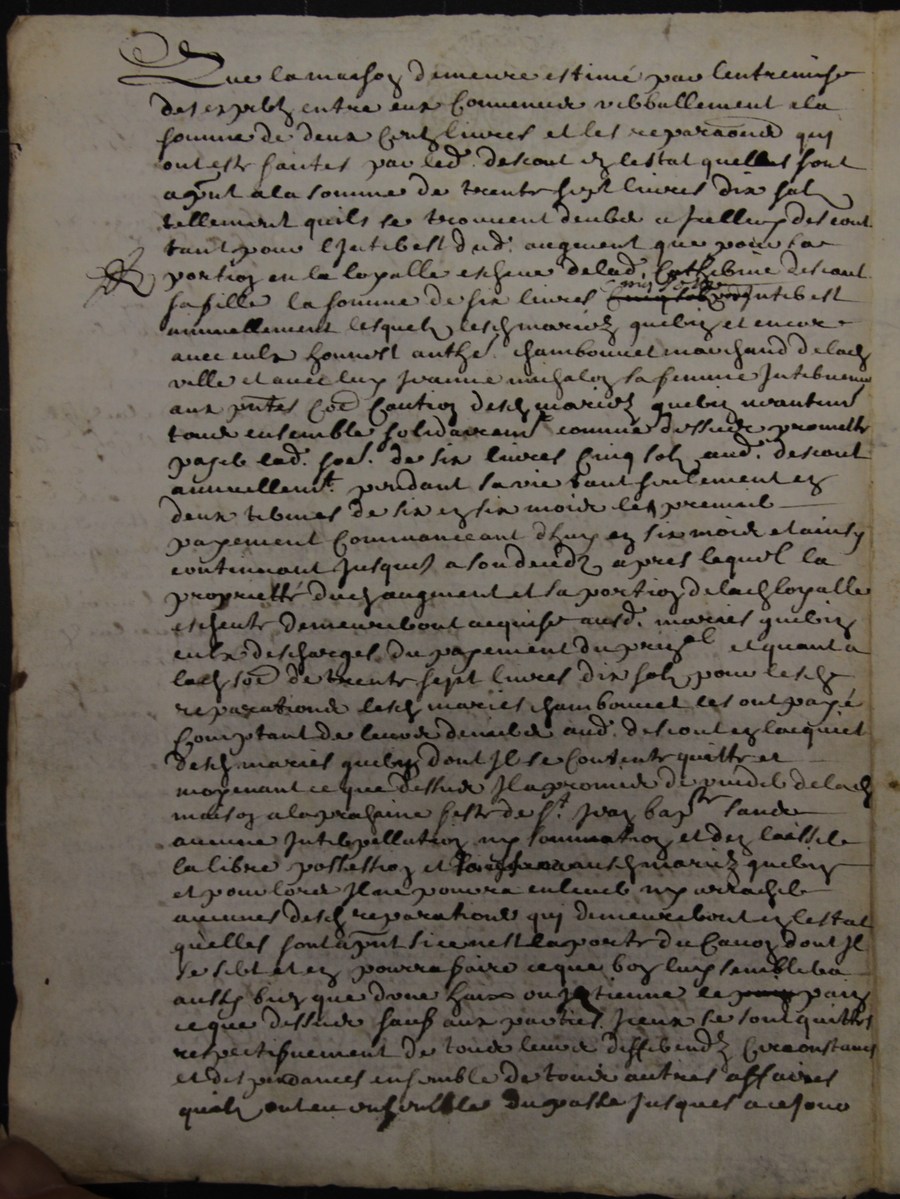 Que la maison demeure estimé par lentremise
des expertz entre eux conveneue verballement a la
somme de deux centz livres et les reparaõns quj
ont este faictes par led. descout en lestat quelles sont
apñt a la somme de trente sept livres dix solz
tellement quils se trouvent debvoir a descout
tant pour linterest dud. augment que pour sa
portion en la loyalle escheue de lad. Catherine descout
sa fille la somme de six livres cinq solz dinterest
annuellement lesquelz lesd mariez quebin et encore
avec eulx honnest anthe. chambonnet marchand de lad
ville et avec luy Jeanne michalon sa femme Intervenue
aux pñtes coe caution desd mariez quebin
tous ensemble solidairemt comme dessus promette
payer lad. soe. de six livres cinq solz aud. descout
annuellemt. pendant sa vie tant seulement en
deux termes de six en six mois le premier
payement commanceant dhuy en six mois et ainsy
continuant jusques a son decedz apres lequel la
proprietté dud augment et sa portion de lad loyalle
escheute demeureront acquise ausd. maries quebin
eulx descharges du payement du prinal et quant a
lad soe de trente sept livres dix solz pour lesd
reparations lesd maries chambonnet les ont payé
comptant de leurs deniers aud. descout en lacquict
desd maries quebin dont Il se contente quitte et
moyenant ce que dessus Il a promis de vuider de lad
maison a la prochaine feste de St. Jean bapte sans
aucune Interpellation ny sommation et den laisser
la libre possession et ausd mariez quebin
et pour lors Il ne pourra enlever ny arracher
aucunes desd reparations quj demeureront en lestat
quelles sont apñt si ce nest la porte du cavon dont Il
se sert et en pourra faire ce que bon luy semblera
aussy bien que dune ou Il tienne le pain
ce que dessus sauf aux parties Iceux se sont quittes
respectifvement de tous leurs differendz circonstances
et despendances ensemble de tous autres affaires
quilz ont eu ensemble du passe jusques a ce jour